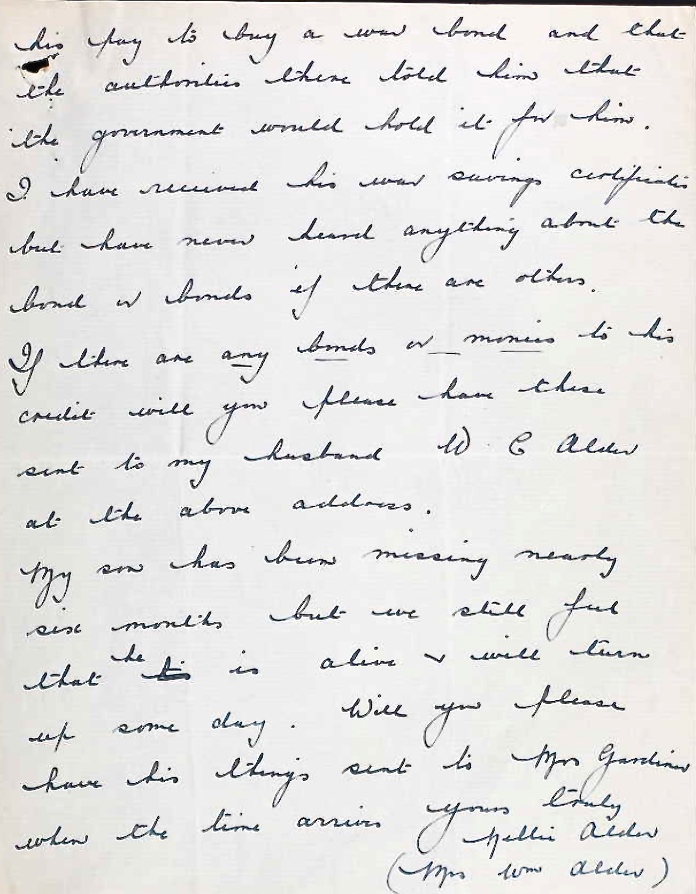 his pay to buy a war bond and that
the authorities there told him that
the government would hold it for him.
I have received his war savings certificates
but have never heard anything about the
bond or bonds if there are others.
If there are any bonds or monies to his
credit will you please have these
sent to my husband W C Alder
at the above address.
My son has been missing nearly
six months but we still feel
that he is alive & will turn
up some day. Will you please
have his things sent to Mrs Gardiner
when the time arrives
yours truly
Nellie Alder
(Mrs Wm Alder)